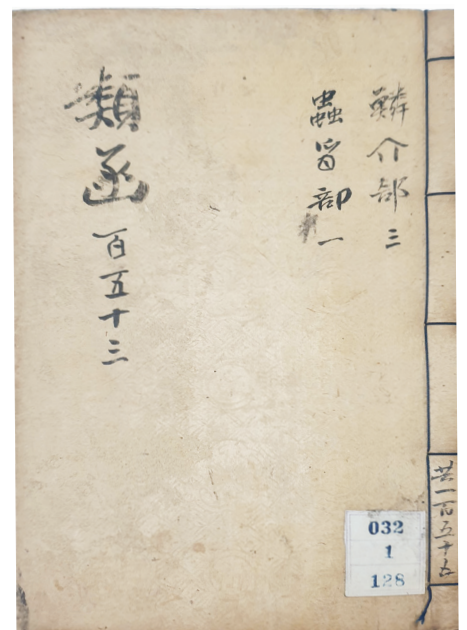 鱗介部 三
蟲豸部 一
類函 百五十三
共一百五十五
032
1
128